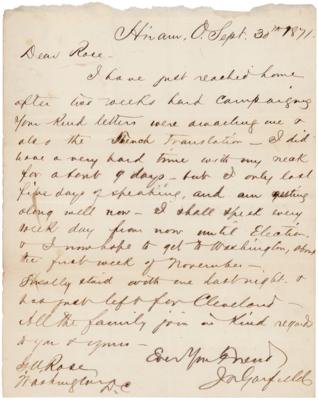 Hiram, O. Sept. 30th 1871.
Dear Rose-
I have just reached home
after two weeks hard campaigning
Your kind letters were awaiting me &
also the French Translation - I did
have a very hard time with my neck
for about 9 days - but I only lost
five days of speaking, and am getting
along well now - I shall speak every
week day from now until Election,
& I now hope to get to Washington, about
the first week of November -
staid with me last night &
has just left for Cleveland -
All the family join in kind regards
to you & yours -
Ever Your Friend
J A Garfield
G.U. Rose
Washington D.C